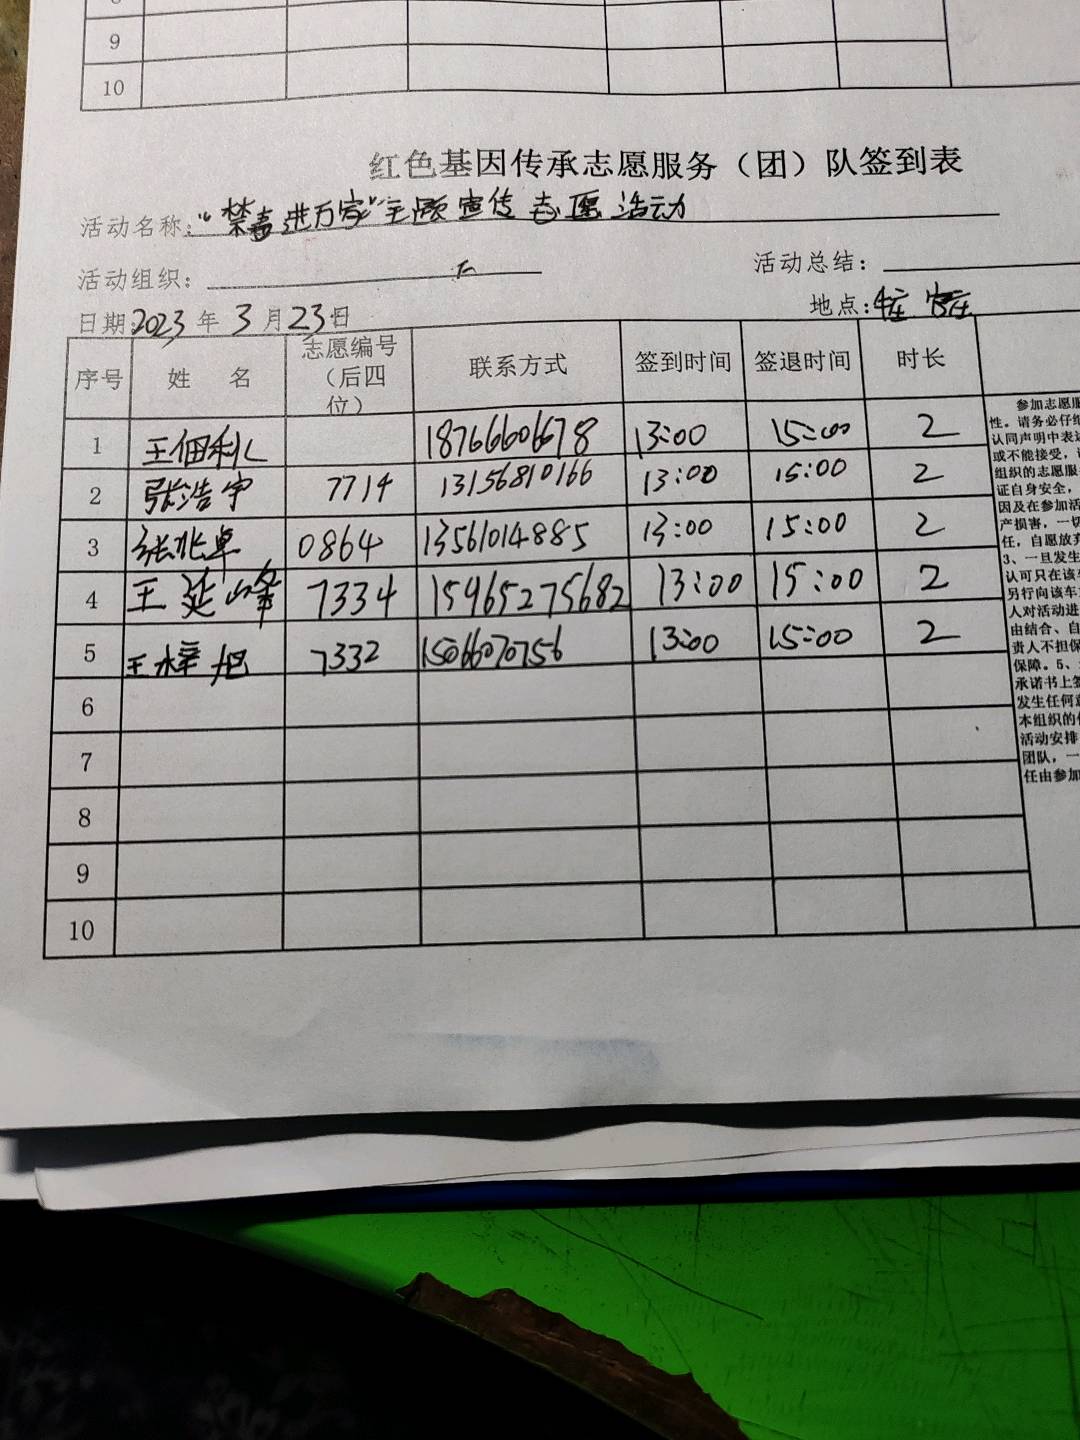 9
10
红色基因传承志愿服务（团）队签到表
活动名称：“禁毒进万家”主题宣传志愿活动
活动组织：
活动总结：
日期：2023 年 3 月 23 日
地点：
序号 姓 名 志愿编号（后四位） 联系方式 签到时间 签退时间 时长
1 王佃利 18766606678 13:00 15:00 2
2 张浩宇 7714 13156810166 13:00 15:00 2
3 张兆卓 0864 13561014885 13:00 15:00 2
4 王延峰 7334 15965275682 13:00 15:00 2
5 王梓旭 7332 15066070756 13:00 15:00 2
6
7
8
9
10
参加志愿服
性。请务必仔细
认同声明中表达
或不能接受，
组织的志愿服
证自身安全，
因及在参加活
产损害，一切
任，自愿放弃
3、一旦发生
认可只在该车
另行向该车
人对活动进
由结合、自
责人不担保
保障。5、
承诺书上签
发生任何意
本组织的
活动安排
团队，一
任由参加